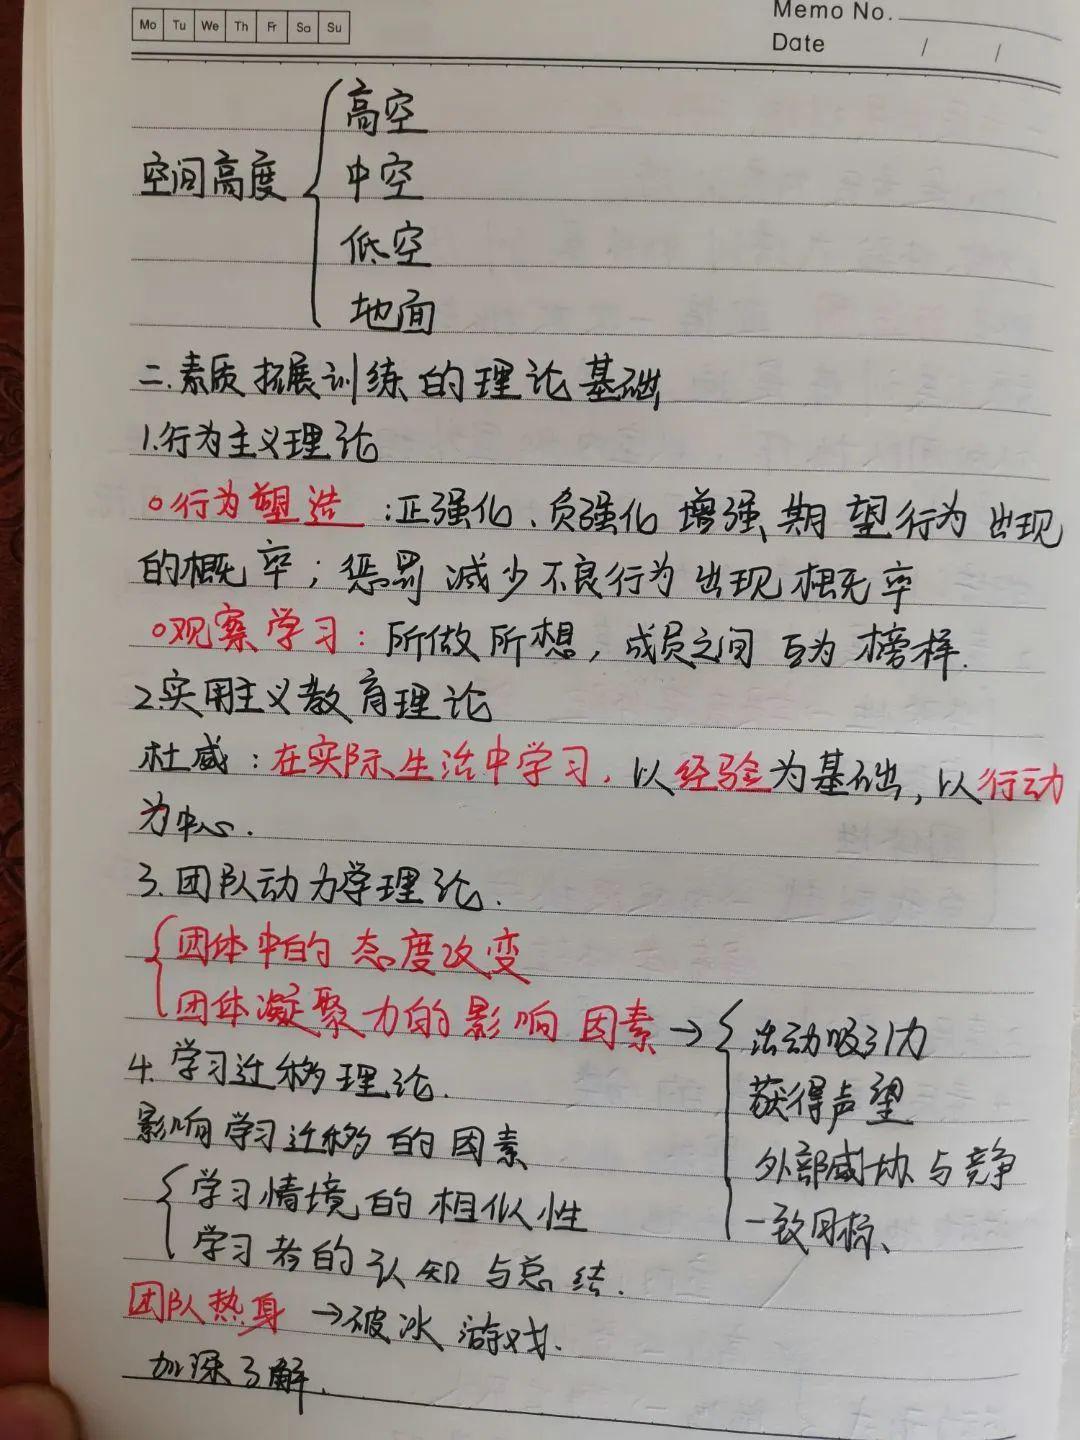 Mo Tu We Th Fr Sa Su
Memo No.
Date / /
空间高度
高空
中空
低空
地面
二.素质拓展训练的理论基础
1.行为主义理论
行为塑造:正强化、负强化增强期望行为出现
的概率;惩罚减少不良行为出现概率
观察学习:所做所想,成员之间互为榜样.
2.实用主义教育理论
杜威:在实际生活中学习,以经验为基础,以行动
为中心.
3.团队动力学理论.
团体中的态度改变
团体凝聚力的影响因素→
活动吸引力
获得声望
外部威胁与竞争
一致目标、
4.学习迁移理论.
影响学习迁移的因素
学习情境的相似性
学习者的认知与总结.
团队热身→破冰游戏.
加深了解.